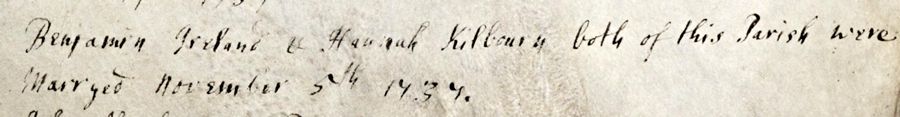 Benjamin Ireland & Hannah Kilbourn both of this Parish were
Marryed November 5th 1737.